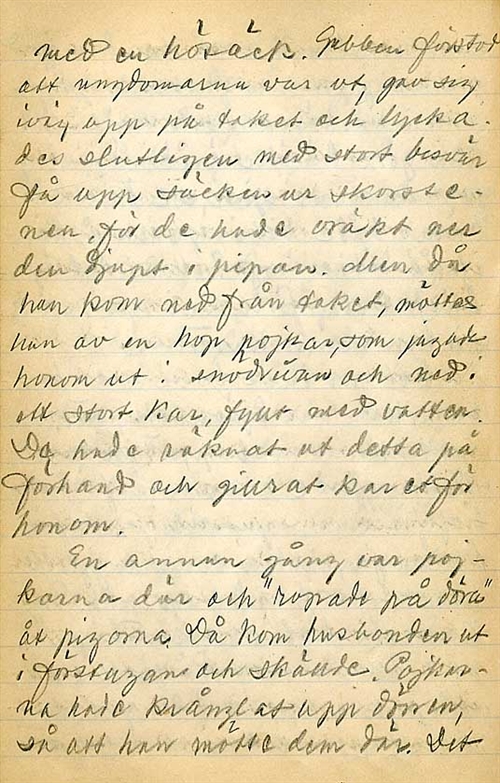 med en hösäck. Gubben förstod
att ungdomarna var ut, gav sig
iväg upp på taket och lycka-
des slutligen med stort besvär
få upp säcken ur skorste-
nen, för de hade vräkt ner
den djupt i pipan. Men då
han kom ned från taket, möttes
han av en hop pojkar, som jagade
honom ut i snödrivan och ned i
ett stort kar, fyllt med vatten.
De hade räknat ut detta på
förhand och gillrat karet för
honom.
En annan gång var poj-
karna där och "ropade på döra"
åt pigorna. Då kom husbonden ut
i förstugan och skällde. Pojkar-
na hade krånglat upp dörren,
så att han mötte dem där. Det